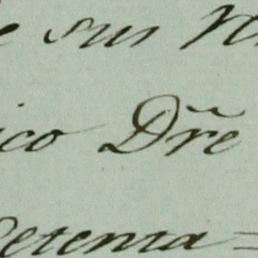 e sus
ico Dr̃e
Setenta=